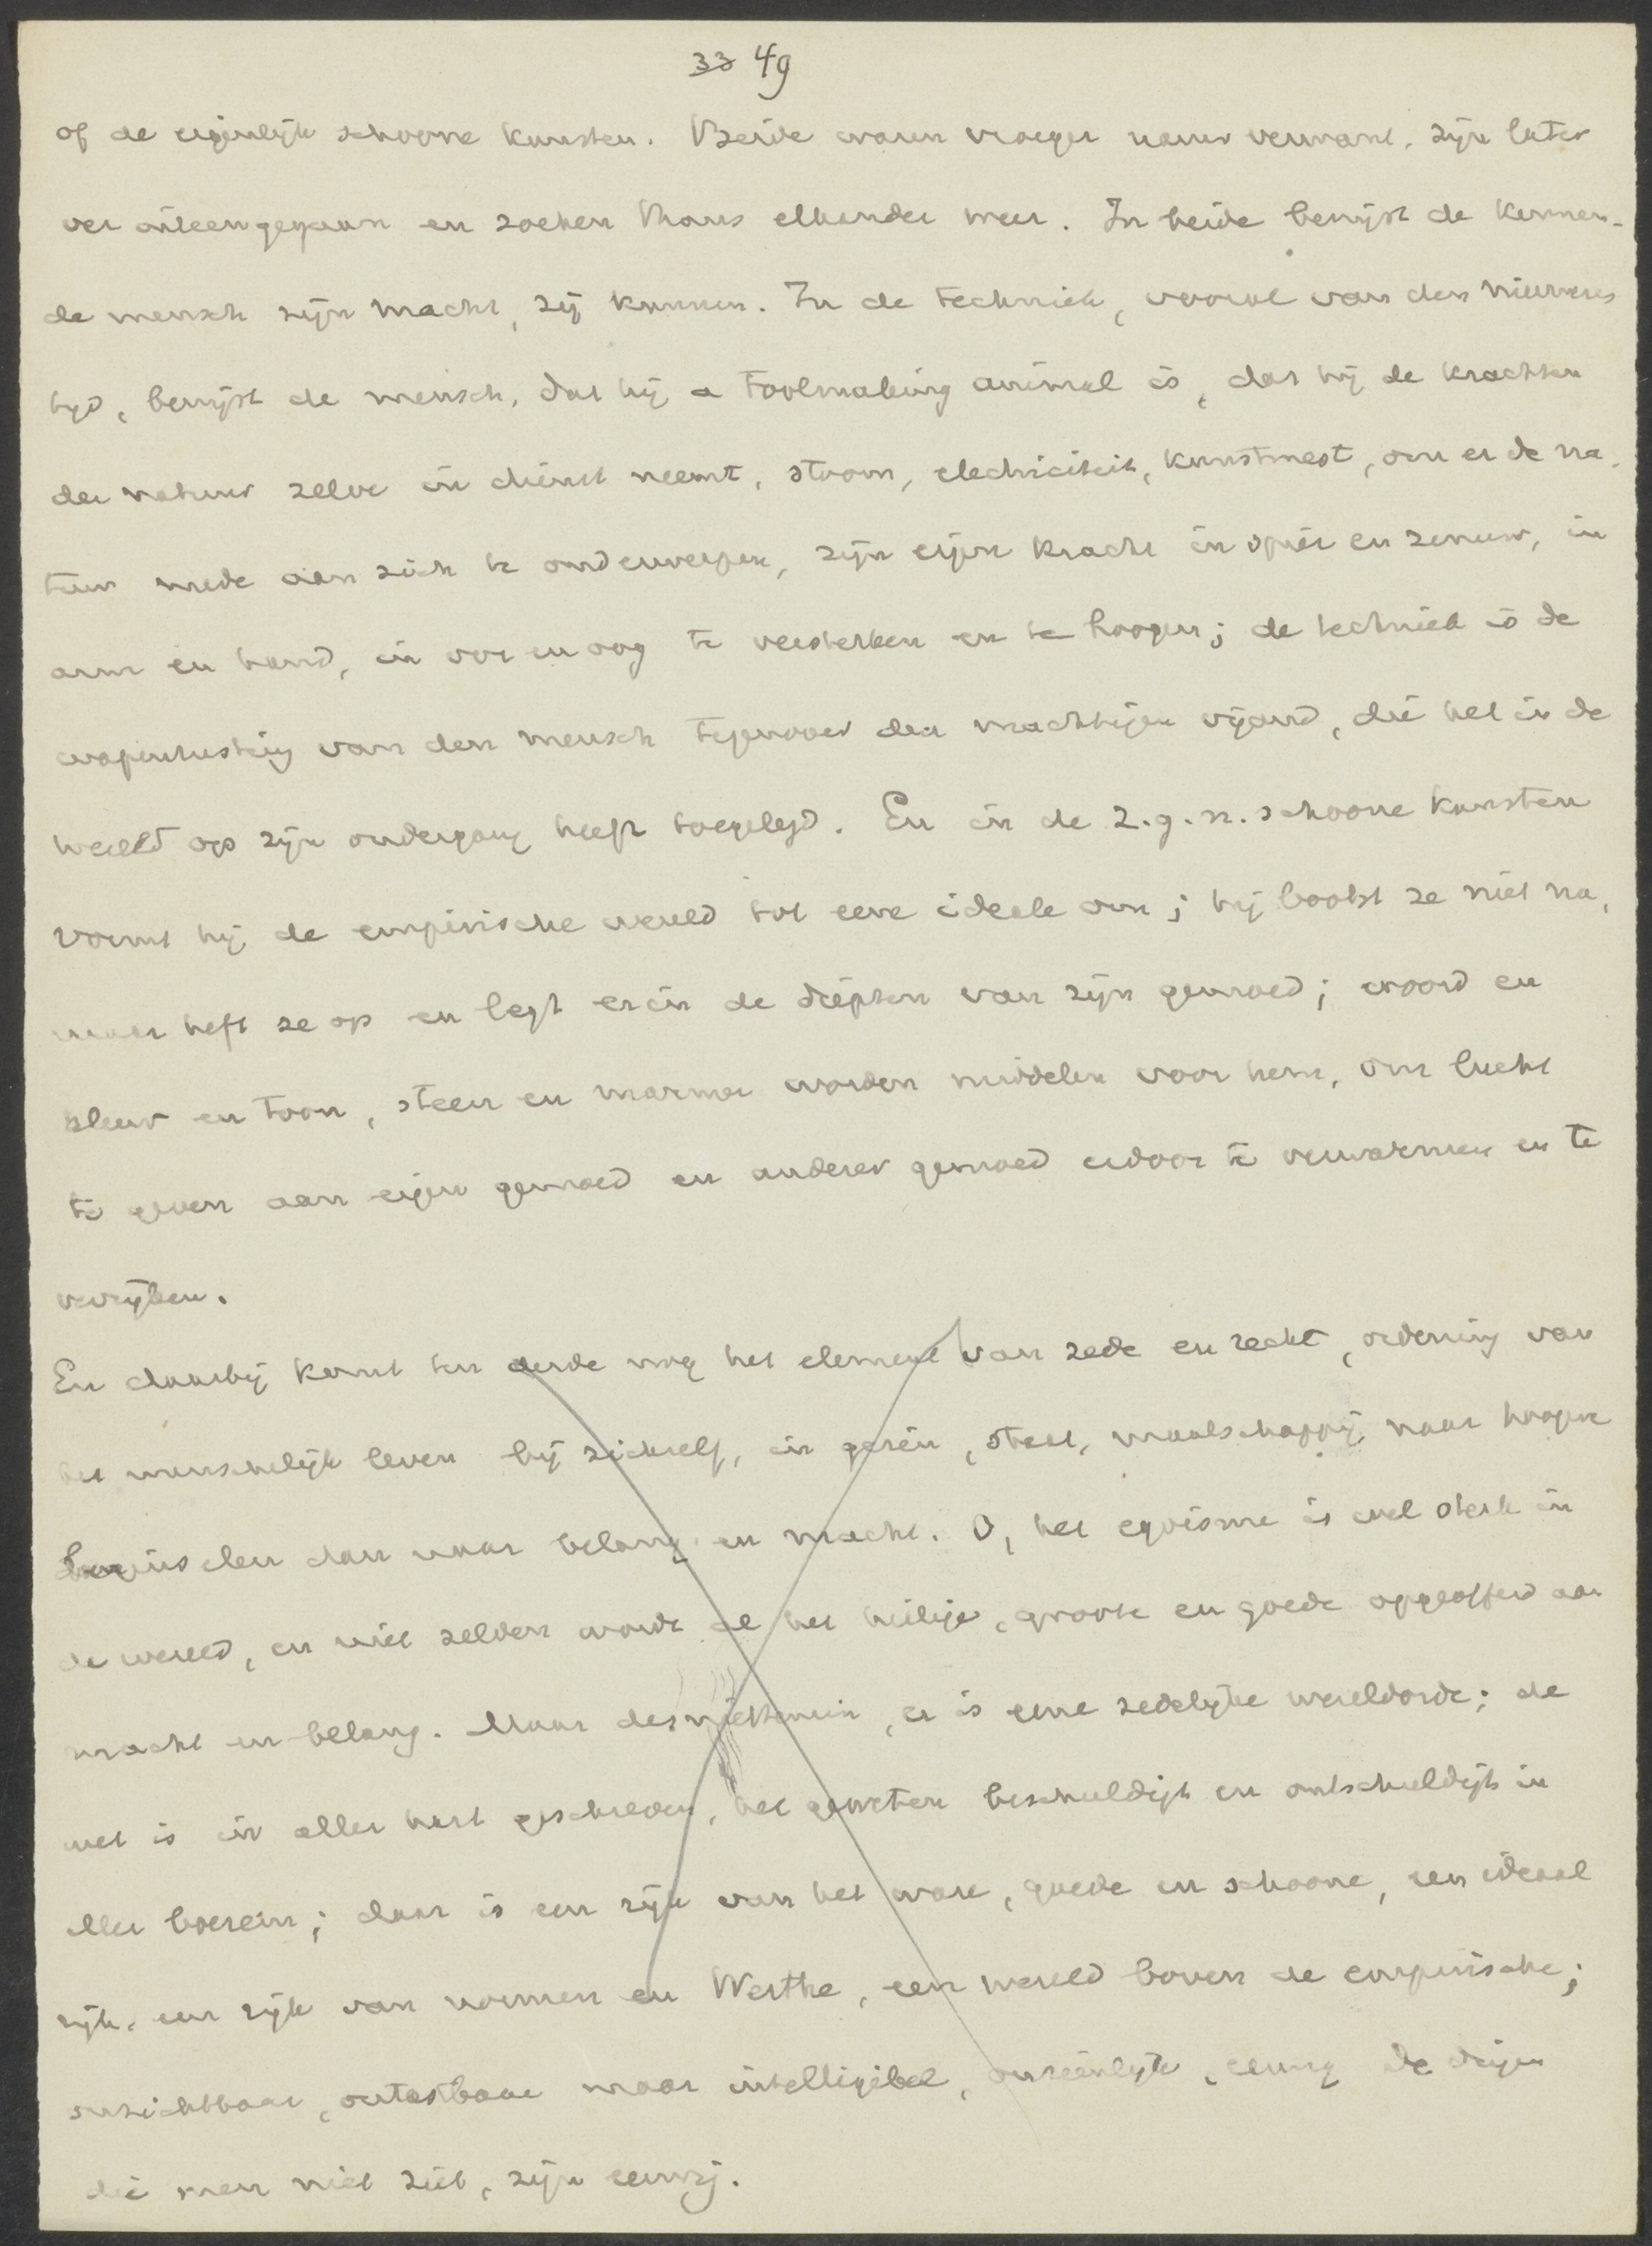 33 49
of de eigenlijk schoone kunsten. Beide waren vroeger nauw verwant, zijn later
ver uiteengegaan en zoeken thans elkander weer. In beide bewijst de kennen-
de mensch zijn macht, zij kunnen. In de techniek, vooral van den nieuweren
tijd, bewijst de mensch, dat hij a toolmaking animal is, dat hij de krachten
der natuur zelve in dienst neemt, stoom, electriciteit, kunstmest, om er de na-
tuur mede aan zich te onderwerpen, zijn eigen kracht in spier en zenuw, in
arm en hand, in oor en oog te versterken en te hoogen; de techniek is de
wapenrusting van den mensch tegenover den machtigen vijand, die het in de
wereld op zijn ondergang heeft toegelegd. En in de z.g.n. schoone kunsten
vormt hij de empirische wereld tot eene ideale om; hij bootst ze niet na,
maar heft ze op en legt erin de diepten van zijn gemoed; woord en
kleur en toon, steen en marmer worden middelen voor hem, om lucht
te geven aan eigen gemoed en anderer gemoed erdoor te verwarmen en te
verrijken.
En daarbij komt ten derde nog het element van zede en recht, ordening van
het menschelijk leven bij zichzelf, in gezin, staat, maatschappij naar hooger
beginselen dan naar belang en macht. O, het egoisme is wel sterk in
de wereld, en niet zelden wordt al het heilige, groote en goede opgeofferd aan
macht en belang. Maar desniettemin, er is eene zedelijke wereldorde; de
wet is in aller hart geschreven, het geweten beschuldigt en ontschuldigt in
aller boezem; daar is een rijk van het ware, goede en schoone, een ideaal
rijk, een rijk van normen en Werthe, een wereld boven de empirische;
onzichtbaar, ontastbaar maar intelligibel, onzienlijk, eeuwig de dingen
die men niet ziet, zijn eeuwig.